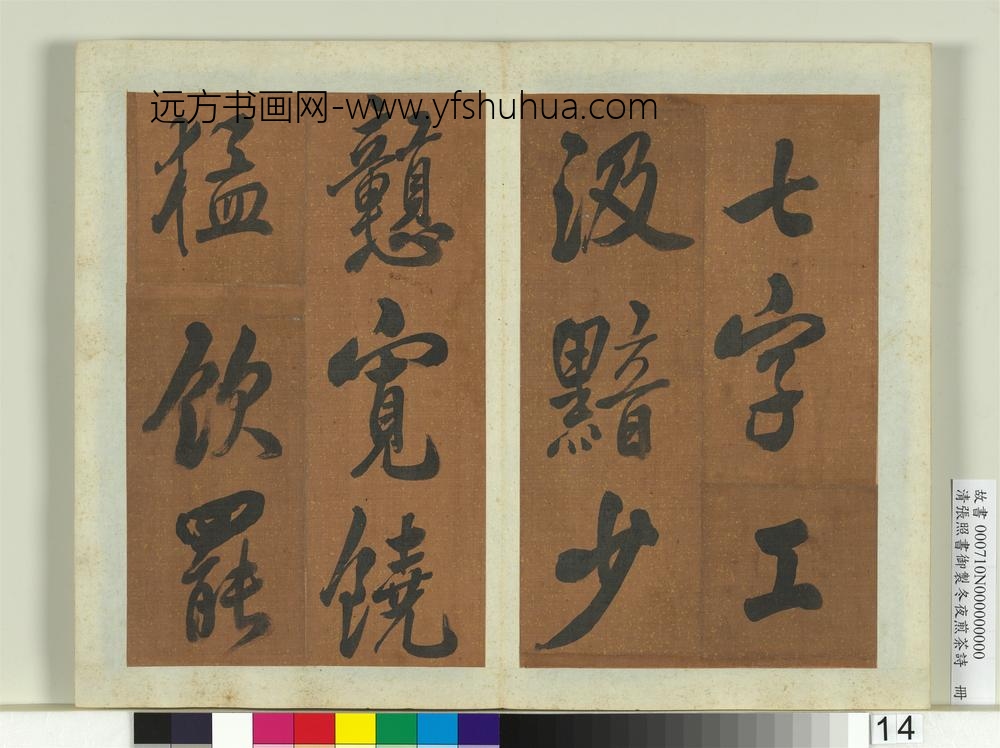 远方书画网-www.yfshuhua.com
七字工
汲黯少
戇寬饒
猛飲罷
故書 000710N000000000
清張照書御製冬夜煎茶詩 冊
14